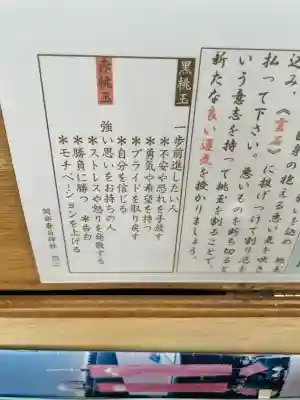 込み、
身の抱える悪い気を
払って下さい。《玄石》に投げつけて割り
いう意志を持って桃玉を割ることで、
新たな良い運気を授かりましょう。
黒桃玉
一歩前進したい人
＊不安や恐れを手放す
＊勇気や希望を持つ
＊プライドを取り戻す
＊自分を信じる
赤桃玉
強い思いをお持ちの人
＊ストレスや怒りを発散する
＊勝負に勝つ ＊告白
＊モチベーションを上げる
春日神社